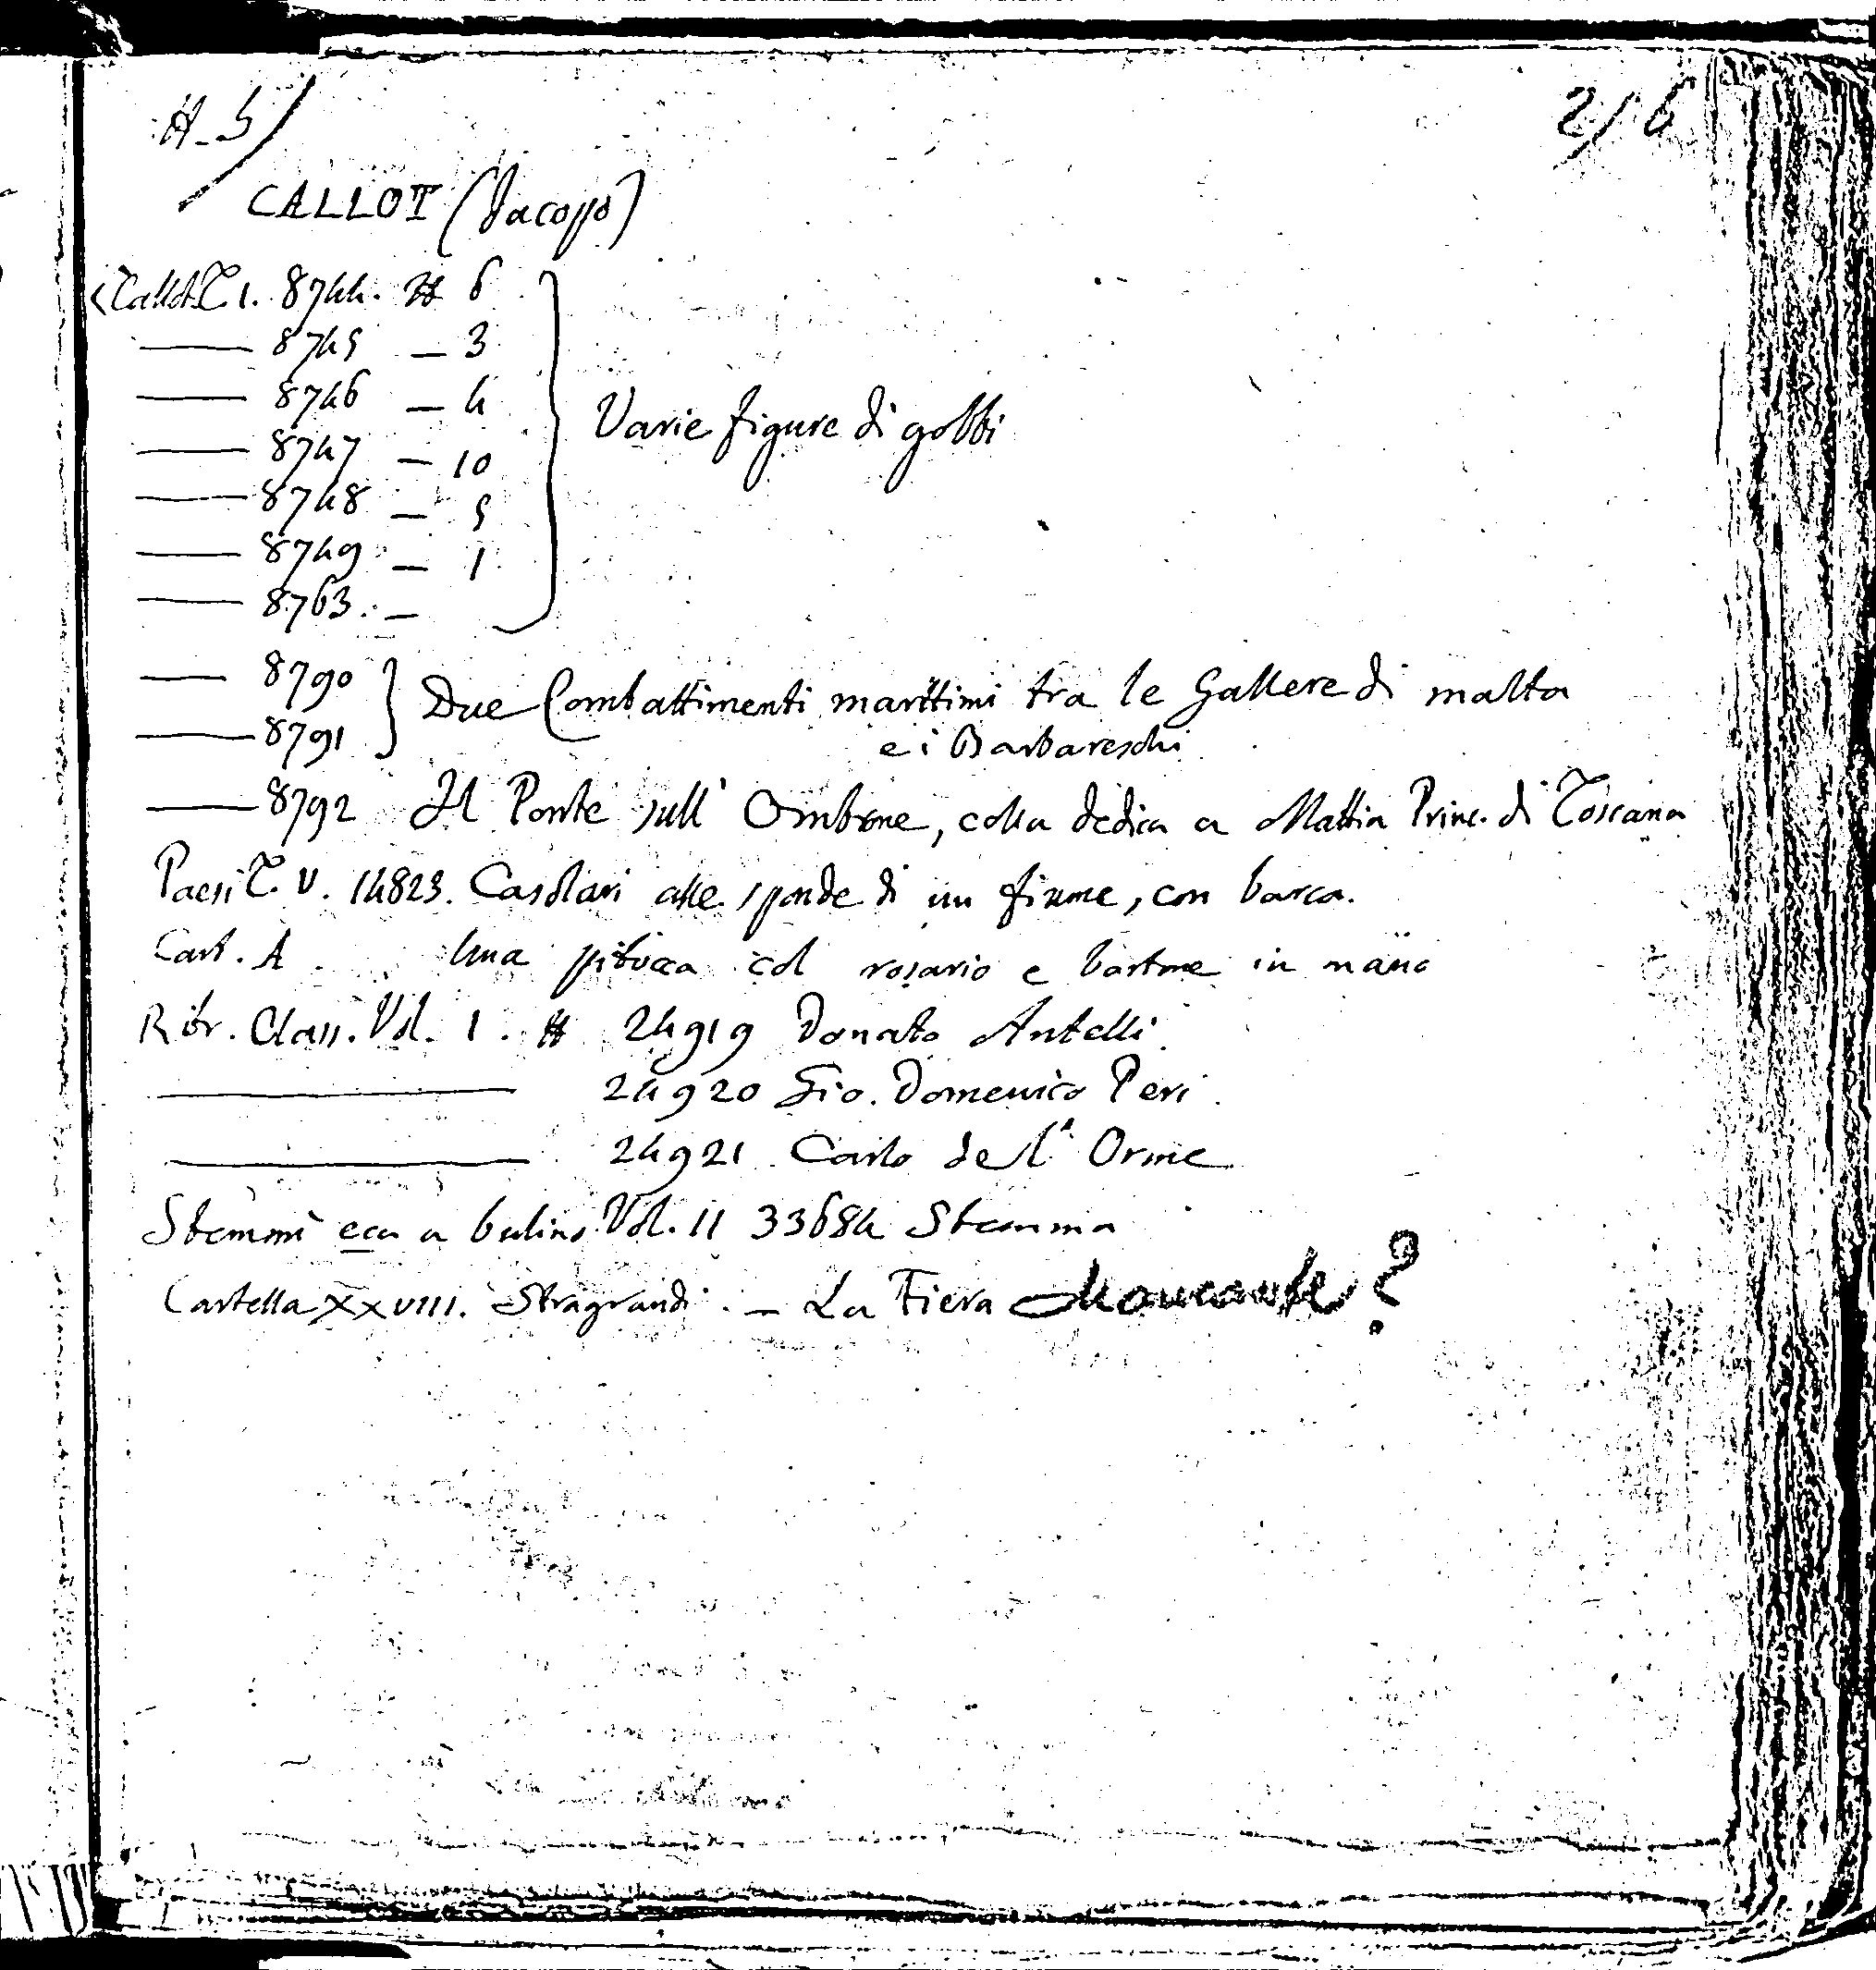 # 5/
216
CALLOT (Jacopo)
Callot T. 1. 8744. # 6
—— 8745 — 3
—— 8746 — 4
—— 8747 — 10
—— 8748 — 5
—— 8749 — 1
—— 8763. —
Varie figure di gobbi
—— 8790
—— 8791
Due Combattimenti marittimi tra le Gallere di malta
e i Barbareschi
—— 8792 Il Ponte sull' Ombrone, colla dedica a Mattia Princ. di Toscana
Paesi T. V. 14823. Casolari alle sponde di un fiume, con barca.
Cart. A Una pitocca col rosario e bastone in mano
Ritr. Class. Vol. 1. # 24919 Donato Antelli
—— 24920 Gio. Domenico Peri
—— 24921 Carlo de l' Orme
Stemmi ecc a bulino Vol. 11 33684 Stemma
Cartella XXVIII. Stragrandi. — La Fiera Mancante?